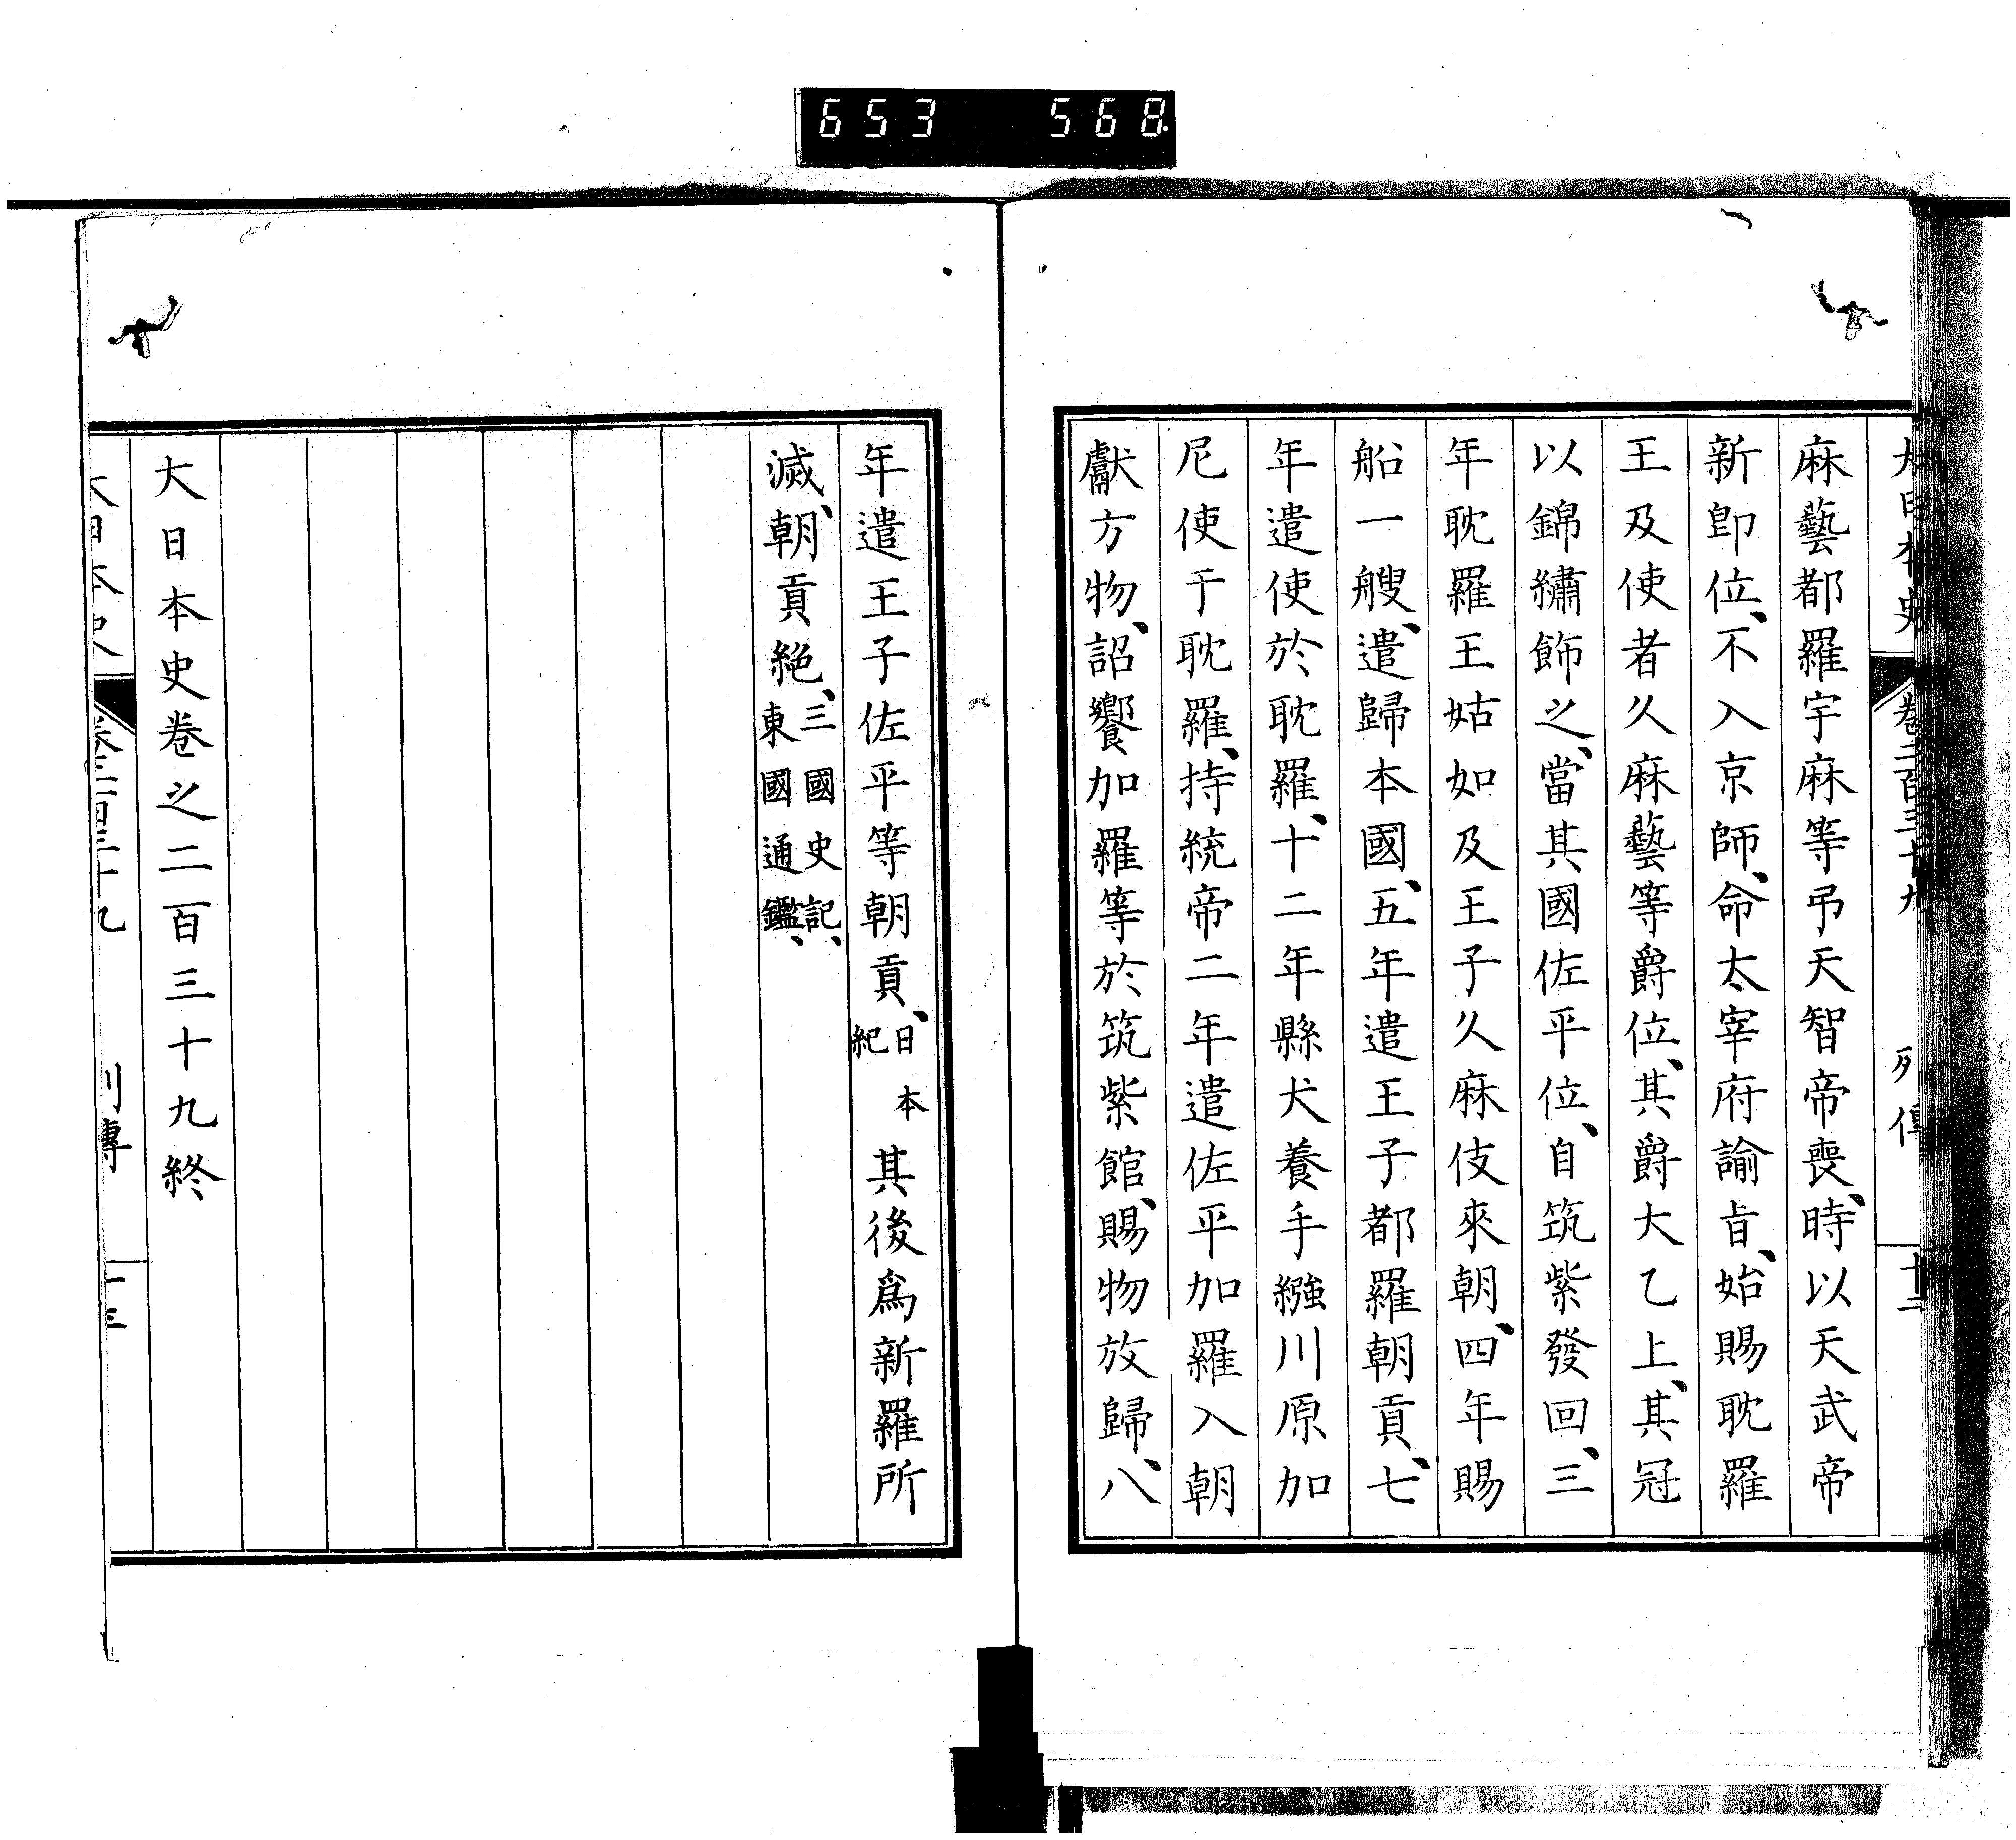 653 568
大日本史 卷二百三十九 列傳 十二
麻藝都羅宇麻等弔天智帝喪、時以天武帝
新卽位、不入京師、命太宰府諭旨、始賜耽羅
王及使者久麻藝等爵位、其爵大乙上、其冠
以錦繡飾之、當其國佐平位、自筑紫發回、三
年耽羅王姑如及王子久麻伎來朝、四年賜
船一艘、遣歸本國、五年遣王子都羅朝貢、七
年遣使於耽羅、十二年縣犬養手繦川原加
尼使于耽羅、持統帝二年遣佐平加羅入朝
獻方物、詔饗加羅等於筑紫館、賜物放歸、八
年遣王子佐平等朝貢、日本紀 其後爲新羅所
滅、朝貢絕、三國史記、東國通鑑、
大日本史卷之二百三十九終
大日本史 卷二百三十九 列傳 十三